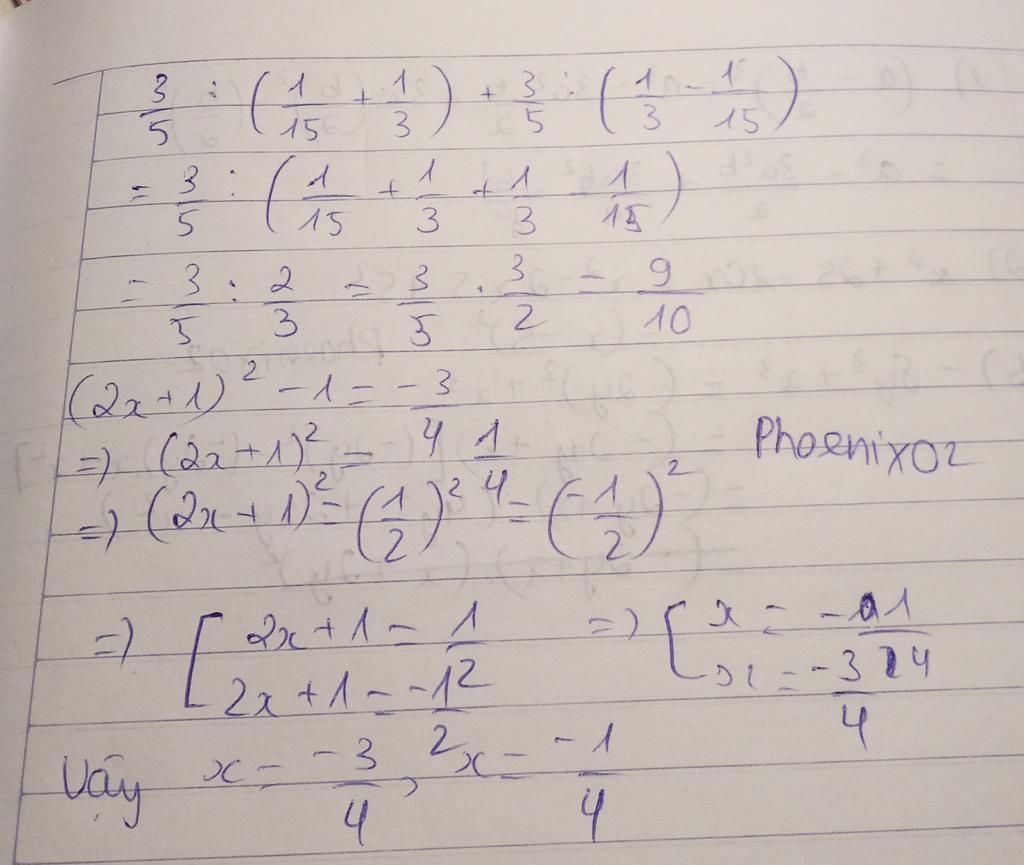 3/5 : (1/15 + 1/3) + 3/5 : (1/3 - 1/15)
= 3/5 : (1/15 + 1/3 + 1/3 - 1/15)
= 3/5 : 2/3 = 3/5 . 3/2 = 9/10
(2x+1)² - 1 = -3/4
=) (2x+1)² = 1/4
Phoenix02
=) (2x+1)² = (1/2)² = (-1/2)²
=) [ 2x+1 = 1/2 =) [ x = -1/4
2x+1 = -1/2 x = -3/4
Vậy x = -3/4, x = -1/4